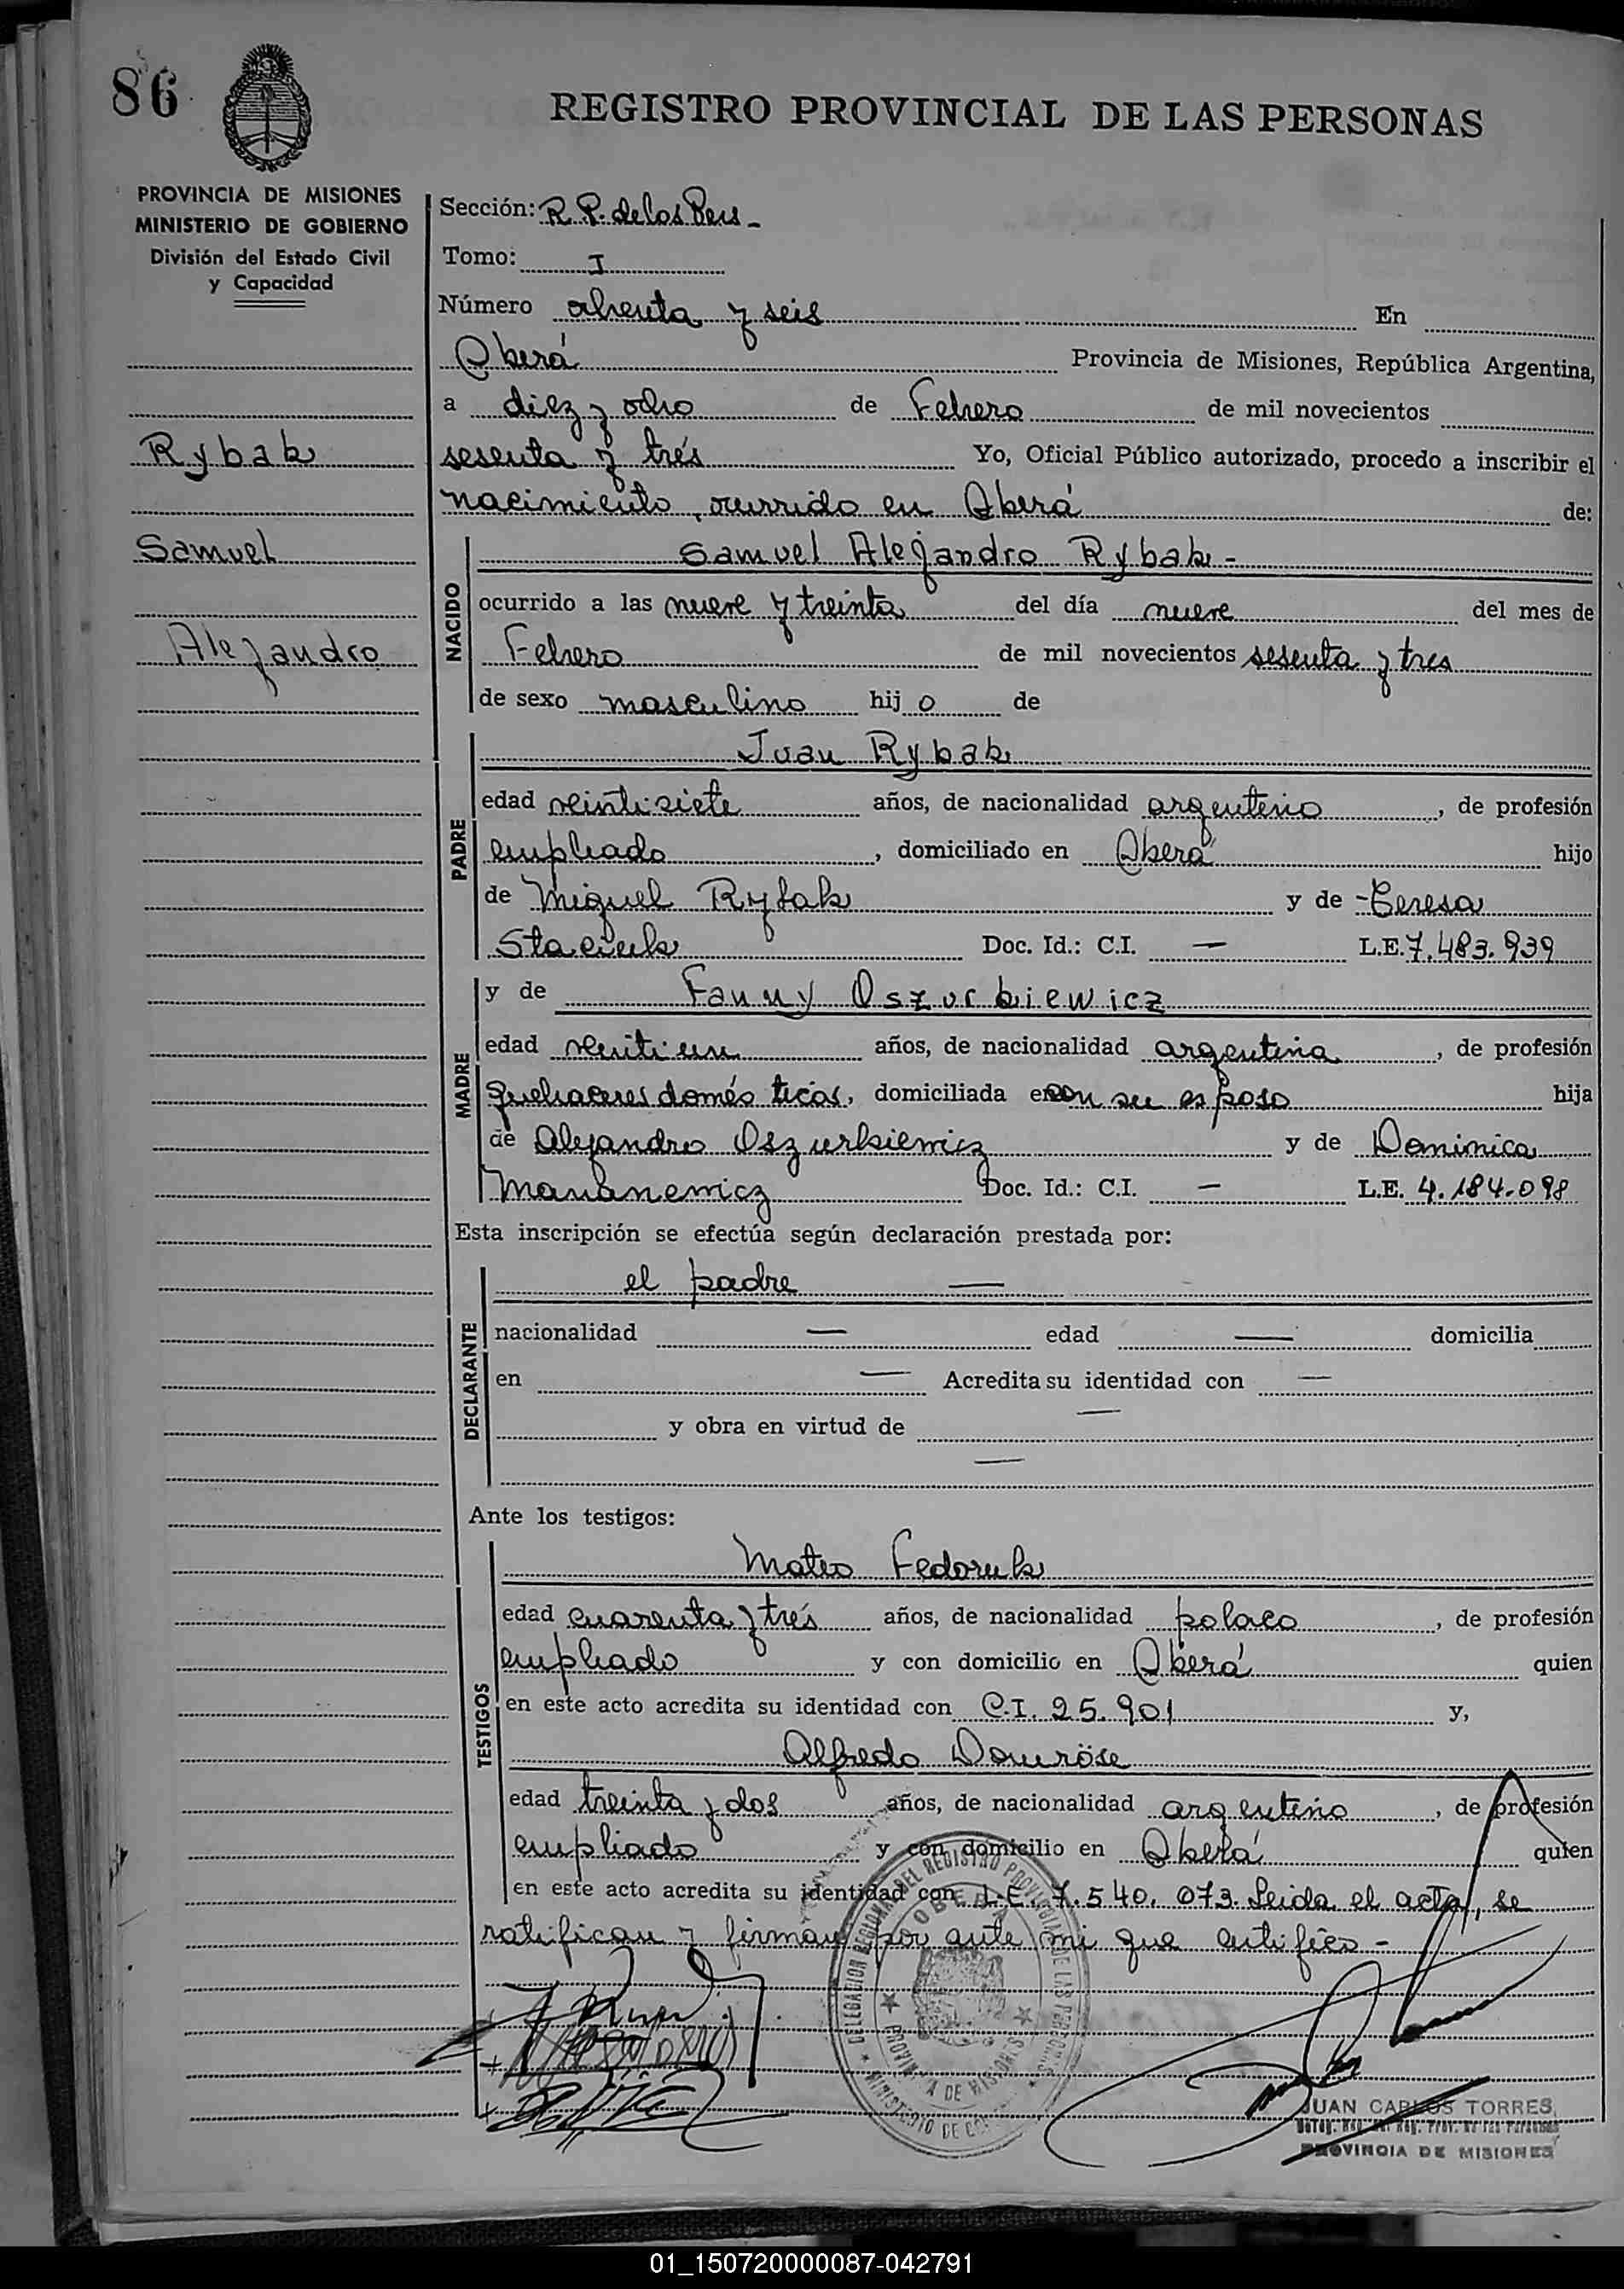 86
REGISTRO PROVINCIAL DE LAS PERSONAS
PROVINCIA DE MISIONES
MINISTERIO DE GOBIERNO
División del Estado Civil
y Capacidad
Rybak
Samuel
Alejandro
Sección: R. P. de los Pers -
Tomo: I
Número ochenta y seis En
Oberá Provincia de Misiones, República Argentina,
a diez y ocho de Febrero de mil novecientos
sesenta y trés Yo, Oficial Público autorizado, procedo a inscribir el
nacimiento, ocurrido en Oberá de:
NACIDO
Samuel Alejandro Rybak -
ocurrido a las nueve y treinta del día nueve del mes de
Febrero de mil novecientos sesenta y tres
de sexo masculino hij o de
PADRE
Juan Rybak
edad veintisiete años, de nacionalidad argentino, de profesión
empleado, domiciliado en Oberá hijo
de Miguel Rybak y de Teresa
Staciuk Doc. Id.: C.I. — L.E. 7.483.939
MADRE
y de Fanny Oszurkiewicz
edad veintiun años, de nacionalidad argentina, de profesión
quehaceres domésticos, domiciliada en con su esposo hija
de Alejandro Oszurkiewicz y de Dominica
Doc. Id.: C.I. — L.E. 4.184.098
Esta inscripción se efectúa según declaración prestada por:
DECLARANTE
el padre —
nacionalidad — edad — domicilia
en — Acredita su identidad con —
y obra en virtud de —
—
Ante los testigos:
TESTIGOS
Mateo Fedoruk
edad cuarenta y trés años, de nacionalidad polaco, de profesión
empleado y con domicilio en Oberá quien
en este acto acredita su identidad con C.I. 25.901 y,
Alfredo Domröse
edad treinta y dos años, de nacionalidad argentino, de profesión
empleado y con domicilio en Oberá quien
en este acto acredita su identidad con L.E. 7.540.073. Leida el acta, se
ratifican y firman por ante mi que certifico -
DELEGACION REGIONAL DEL REGISTRO PROVINCIAL DE LAS PERSONAS
OBERA
PROVINCIA DE MISIONES
MINISTERIO DE GOBIERNO
JUAN CARLOS TORRES
PROVINCIA DE MISIONES
01_150720000087-042791